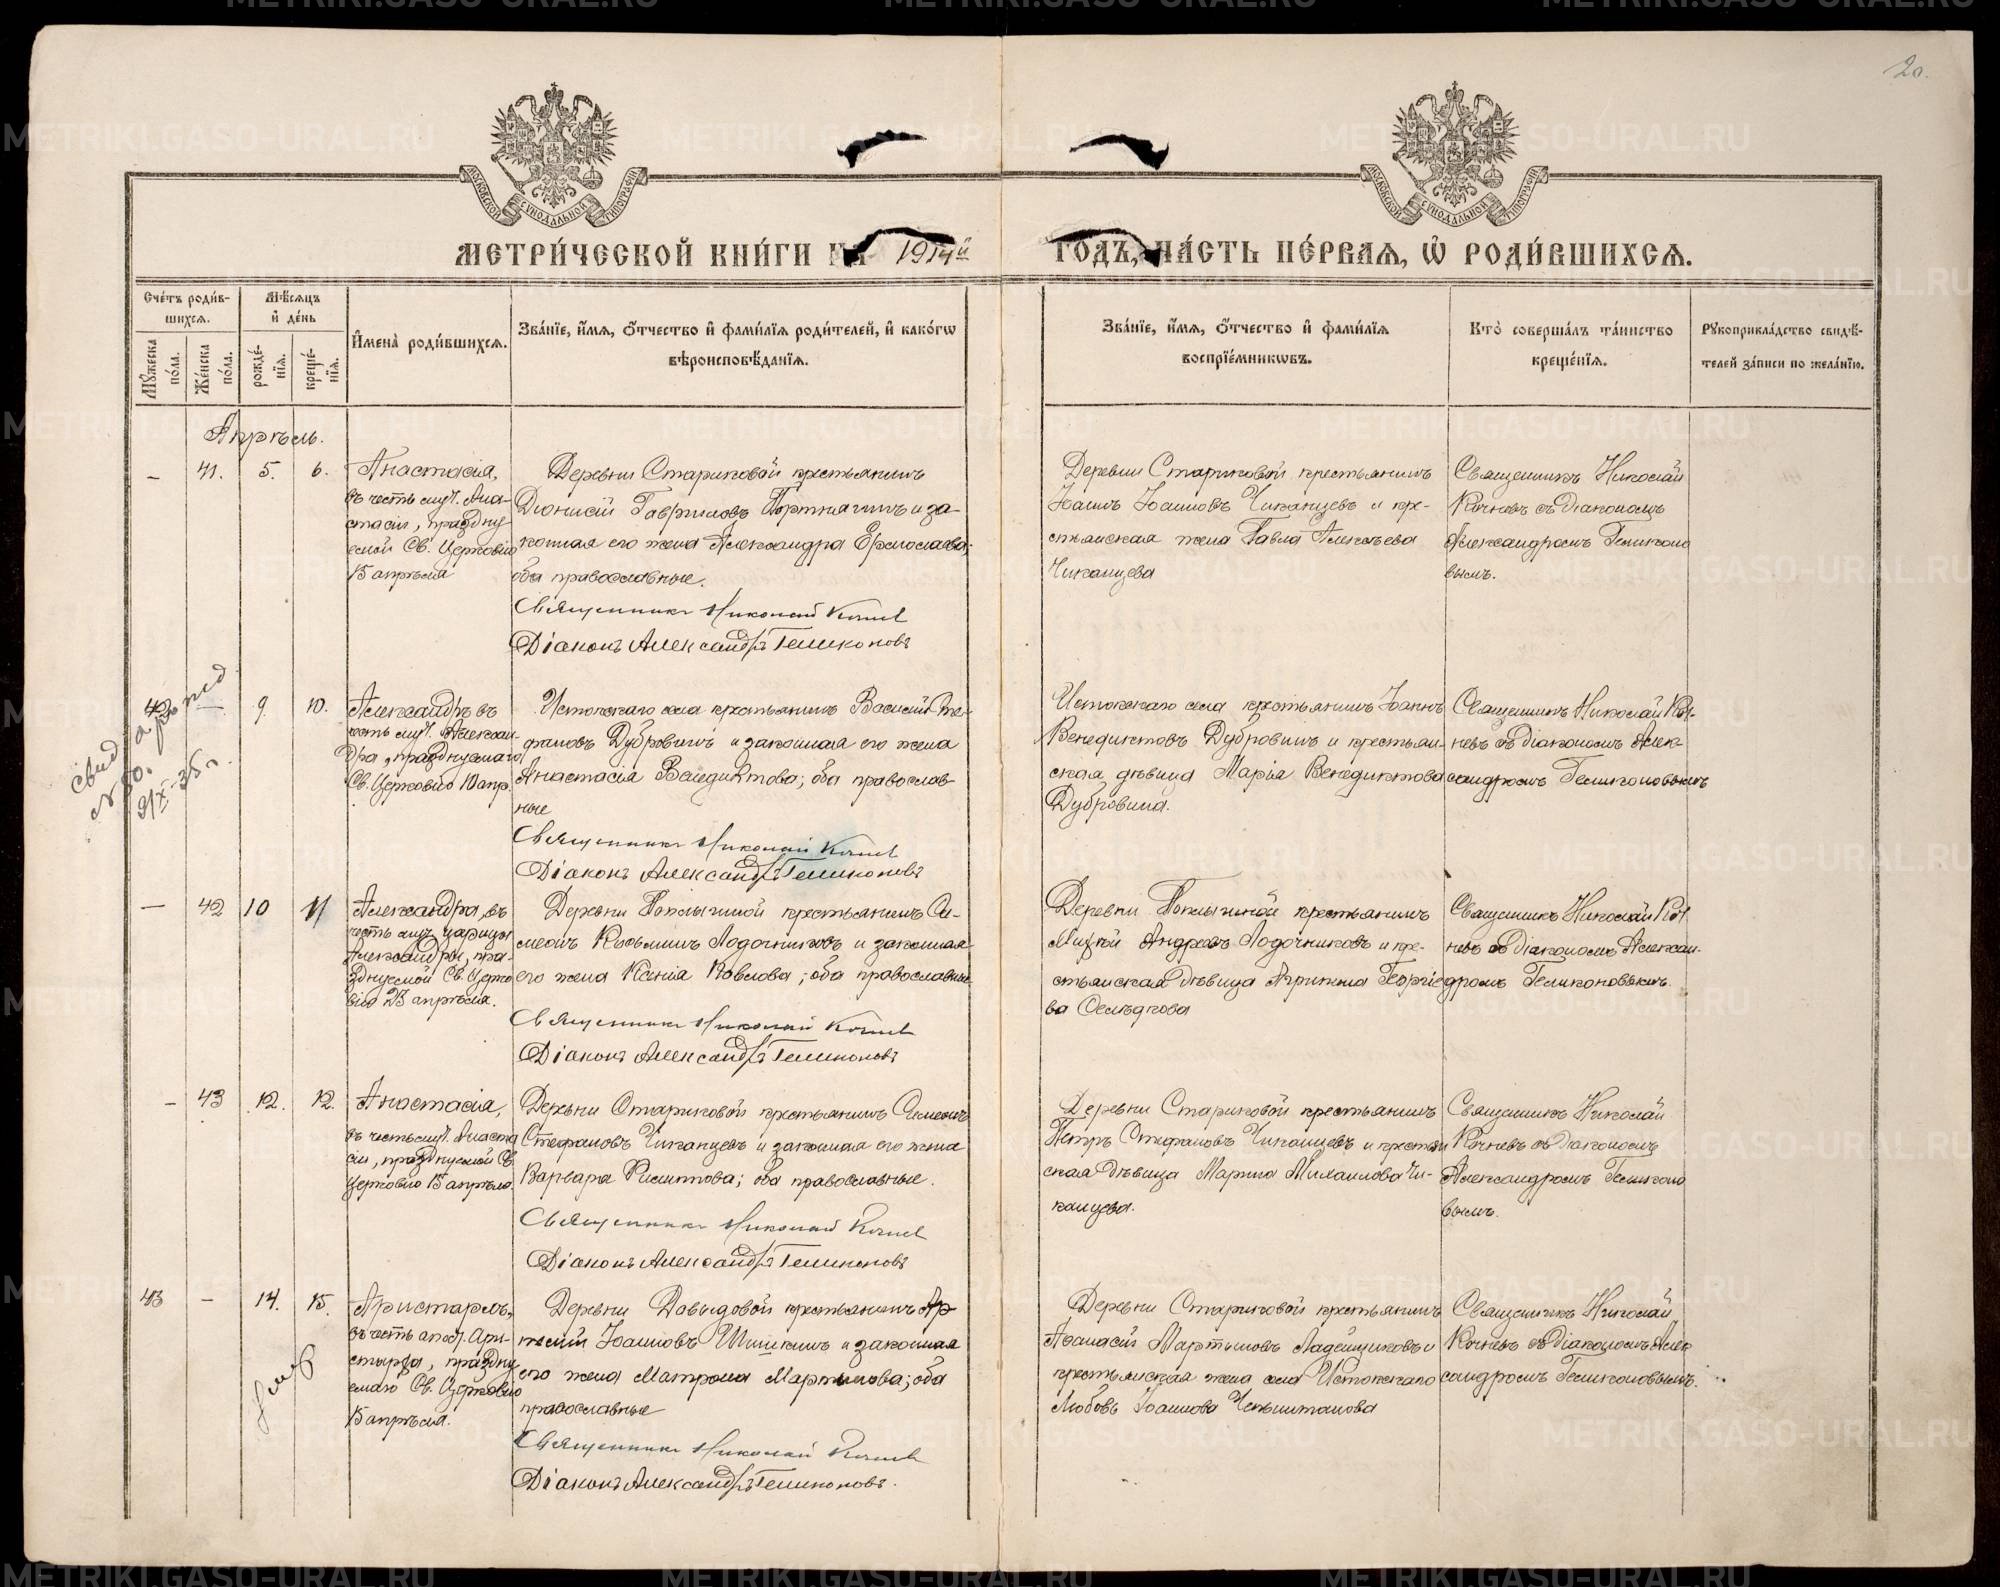 20.
МОСКОВСКОЙ СУНОДАЛЬНОЙ ТИПОГРАФІИ
МОСКОВСКОЙ СУНОДАЛЬНОЙ ТИПОГРАФІИ
МЕТРИ́ЧЕСКОЙ КНИ́ГИ НА 1914й ГОДЪ, ЧА́СТЬ ПЕ́РВАЯ, Ѡ҆ РОДИ́ВШИХСЯ.
Сче́тъ роди́в-
шихся.
Мꙋ́жеска по́ла.
Же́нска по́ла.
Мѣ́сяцъ
и҆ де́нь
рожде́-
нїя.
креще́-
нїя.
И҆мена̀ роди́вшихся.
Зва́нїе, и҆́мя, ѻ҆́тчество и҆ фами́лїя роди́телей, и҆ како́гѡ
вѣроисповѣ́данїя.
Зва́нїе, и҆́мя, ѻ҆́тчество и҆ фами́лїя
воспрїе́мникѡвъ.
Кто̀ соверша́лъ та́инство
креще́нїя.
Рꙋкоприкла́дство свидѣ́-
телей за́писи по жела́нїю.
Апрѣль.
— 41. 5. 6.
Анастасія,
въ честь муч. Ана-
стасіи, праздну
емой Св. Церковію
15 апрѣля
Деревни Стариковой крестьянинъ
Діонисій Гавриловъ Портнягинъ и за-
конная его жена Александра Ермолаева;
оба православные.
Священникъ Николай Кочневъ
Діаконъ Александръ Геликоновъ
Деревни Стариковой крестьянинъ
Іоаннъ Іоанновъ Чиканцевъ и кре-
стьянская жена Павла Алексѣева
Чиканцева
Священникъ Николай
Кочневъ съ діакономъ
Александромъ Геликоно
вымъ.
42 — 9. 10.
Александръ въ
честь муч. Алексан-
дра, празднуемаго
Св. Церковію 10 апр.
Истокскаго села крестьянинъ Василій Сте-
фановъ Дубровинъ и законная его жена
Анастасія Венедиктова; оба православ-
ные
Священникъ Николай Кочневъ
Діаконъ Александръ Геликоновъ
Истокскаго села крестьянинъ Іоаннъ
Венедиктовъ Дубровинъ и крестьян-
ская дѣвица Марія Венедиктова
Дубровина.
Священникъ Николай Коч-
невъ съ діакономъ Алек-
сандромъ Геликоновымъ
— 42 10 11
Александра, въ
честь муч. царицы
Александры, пра-
зднуемой Св. Церко
вію 23 апрѣля.
крестьянинъ Си-
меонъ Козьминъ Лодочниковъ и законная
его жена Ксенія Павлова; оба православные
Священникъ Николай Кочневъ
Діаконъ Александръ Геликоновъ
крестьянинъ
Андреевъ Лодочниковъ и кре-
стьянская дѣвица Агриппина Георгіе
ва Селѣдкова
Священникъ Николай Коч
невъ съ діакономъ Алексан-
дромъ Геликоновымъ.
— 43 12. 12.
Анастасія,
въ честь муч. Анаста
сіи, празднуемой Св.
Церковію 15 апрѣля.
Деревни Стариковой крестьянинъ Симеонъ
Стефановъ Чиканцевъ и законная его жена
Варвара Филиппова; оба православные.
Священникъ Николай Кочневъ
Діаконъ Александръ Геликоновъ
Деревни Стариковой крестьянинъ
Петръ Стефановъ Чиканцевъ и крестьян
ская дѣвица Марина Михаилова Чи-
канцева.
Священникъ Николай
Кочневъ съ діакономъ
Александромъ Геликоно
вымъ.
43 — 14. 15.
Аристархъ,
въ честь апост. Ари-
старха, праздну
емаго Св. Церковію
15 апрѣля.
Деревни Давыдовой крестьянинъ Ар
темій Іоанновъ Шишкинъ и законная
его жена Матрона Мартинова; оба
православные
Священникъ Николай Кочневъ
Діаконъ Александръ Геликоновъ.
Деревни Стариковой крестьянинъ
Аѳанасій Мартыновъ Ладейщиковъ и
крестьянская жена села Истокскаго
Любовь Іоаннова
Священникъ Николай
Кочневъ съ діакономъ Алек
сандромъ Геликоновымъ.
METRIKI.GASO-URAL.RU